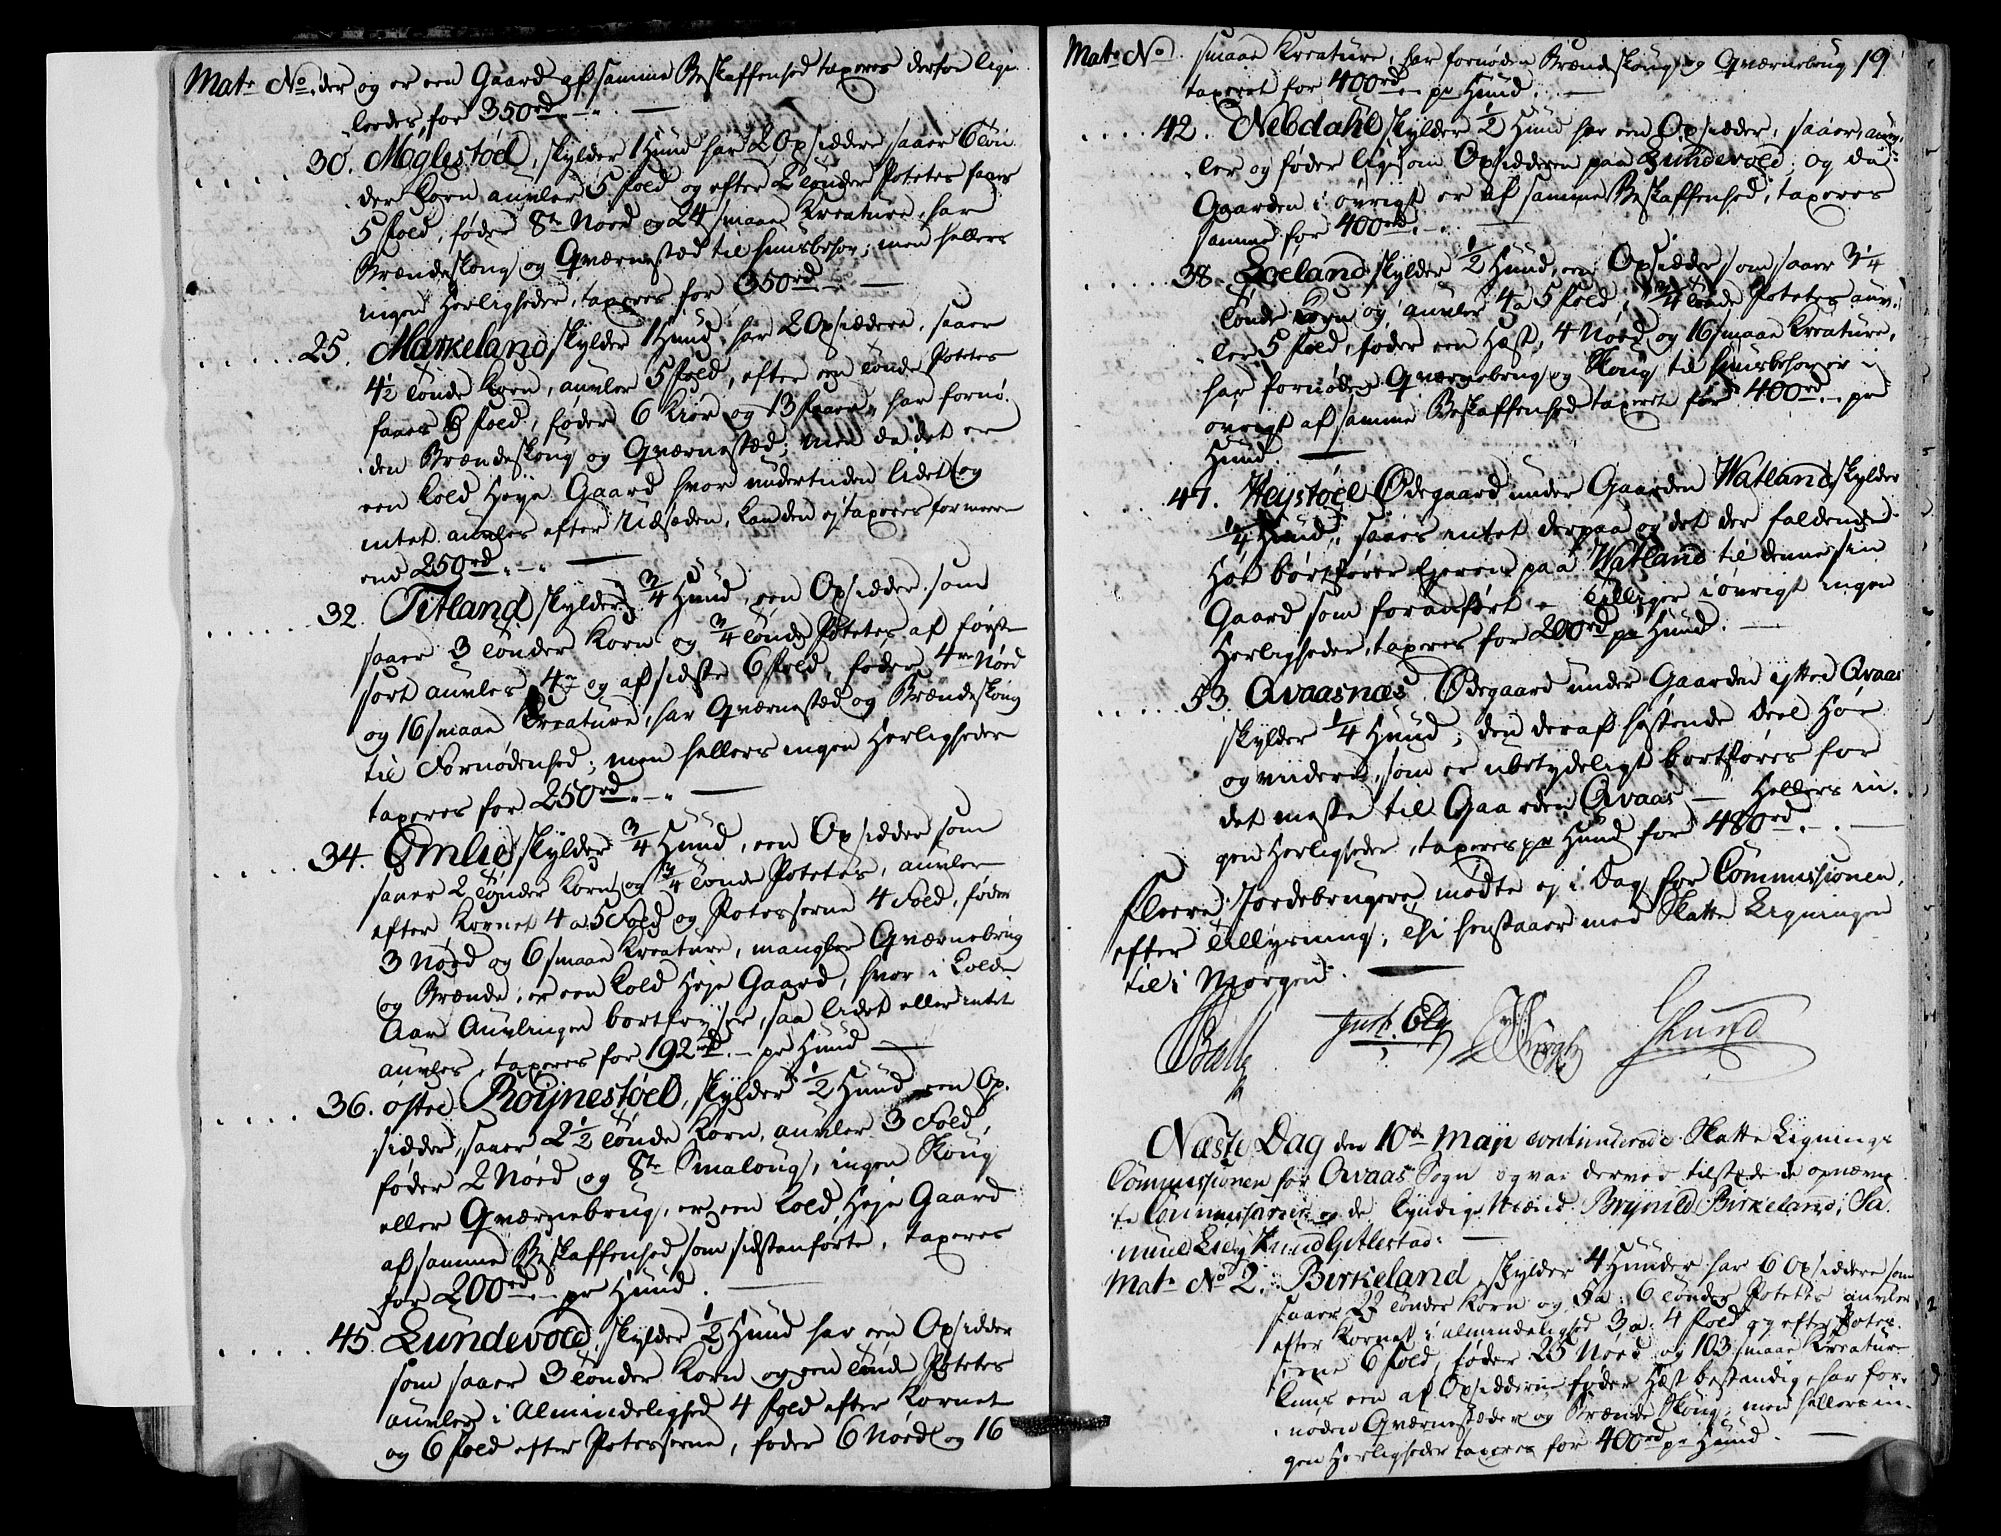 Matr No. der og er een Gaard af samme Beskaffenhed taxeres derfor lige-
ledes for 350rd. — " —
30. Moglestøel, skylder 1 Hund har 2 Opsiddere saaer 6 Tøn-
der Korn auvler 5 fold og efter 2 Tønder Potetes faaes
5 fold, føder 8te Nøed og 24 smaae Kreature, har
Brændeskoug og Qværnestæd til huusbehov; men hellers
ingen Herligheder, taxeres for 350rd. —
25. Maskeland, skylder 1 Hund, har 2 Opsiddere, saaer
4½ Tønde Korn, auvler 5 fold, efter een Tønde Potetes
faaes 6 fold, føder 6 Kiør og 13 faaer, har fornø-
den Brændeskoug og Qværnestæd; men da det er
een kold Høye Gaard hvor undertiden lidet og
intet auvles efter Udsæden, kan den ej taxeres for mere
end 250rd. — " —
32. Titland, skylder ¾ Hund, een Opsidder som
saaer 3 Tønder Korn og ¾ Tønde Potetes af første
sort auvles 4re og af sidste 6 fold, føder 4re Nøed
og 16 smaae Kreature, har Qværnestæd og Brændeskoug
til Fornødenhed; men hellers ingen Herligheder
taxeres for 250rd. — " —
34. Omlie, skylder ¾ Hund, een Opsidder som
saaer 2 Tønder Korn og ¾ Tønde Potetes, auvler
efter Kornet 4 a 5 Fold og Potesserne 4 Fold, føder
3 Nøed og 6 smaae Kreature, mangler Qværnebrug
og Brænde, er een kold Høje Gaard, hvor i kolde
Aar Auvlingen bortfryser, saa lidet eller intet
auvles, taxeres for 192rd. — pr Hund —
36. østre Roÿnestøel, skylder ½ Hund een Op-
sidder, saaer 2½ Tønde Korn, auvler 3 Fold,
føder 2 Nøed og 8te Smaloug, ingen Skoug
eller Qværnebrug, er een kold Høje Gaard
af samme Beskaffenhed som sidstanførte, taxeres
for 200rd. — pr Hund. —
45. Lundevold, skylder ½ Hund har een Opsidder
som saaer 3 Tønder Korn og een Tønde Potetes
auvler i Almindelighed 4 fold efter Kornet
og 6 fold efter Potesserne, føder 6 Nøed og 16
Matr No. smaae Kreature, har fornøden Brændeskoug og Qværnebrug 19
taxeret for 400rd. — pr Hund. —
42. Nebdahl, skylder ½ Hund har een Opsidder, saaer, auv-
ler og føder ligesom Opsidderen paa Lundevold; og da
Gaarden i øvrigt er af samme Beskaffenhed, taxeres
samme for 400rd. — —
38. Loeland, skylder ½ Hund, een Opsidder, som saaer 3¼
Tønde Korn og auvler 4 a 5 fold; ¾ Tønde Potetes auv-
ler 5 fold, føder een Hæst, 4 Nøed og 16 smaae Kreature,
har fornøden Qværnebrug og Skoug til huusbehov er i
øvrigt af samme Beskaffenhed taxeret for 400rd. — pr
Hund. —
47. Heystøel Ødegaard under Gaarden Watland, skylder
¼ Hund, saaes intet derpaa og det der faldende
Høe bortfører Ejeren paa Watland til denne sin
Gaard som foranført — tilligger i øvrigt ingen
Herligheder, taxeres for 200rd pr Hund. —
53. Qvaasnæs, Ødegaard under Gaarden yttre Qvaas
skylder ¼ Hund; den deraf høstende Deel Høe
og viidere, som er ubetydeligt bortføres for
det meste til Gaarden Qvaas — Hellers in-
gen Herligheder, taxeres pr Hund for 480rd. — . —
Fleere Jordebrugere mødte ej i Dag for Commissionen,
efter Tillysning; thi henstaaer med Skatte Ligningen
til i Morgen. —
Balle Just Ely Lund
Næste Dag den 10de Maji continuerede Skatte Lignings
Commissionen for Qvaas Sogn og var derved tilstede de opnævn-
te Commissarier og de kyndige Mænd Brynild Birkeland, Sa-
muel Lie og Knud Gitlestad. —
Matr No 2. Birkeland, skylder 4 Hunder har 6 Opsiddere som
saaer 27 Tønder Korn og Sa: 6 Tønder Potetes auvler
efter Kornet i almindelighed 3 a 4 fold og efter Potes-
serne 6 fold, føder 25 Nøed og 103 smaae Kreature
kuns een af Opsidderne føder Hæst bestandig, har for-
nøden Qværnestæder og Brænde Skoug; men hellers in-
gen Herligheder taxeres for 400rd pr Hund. —